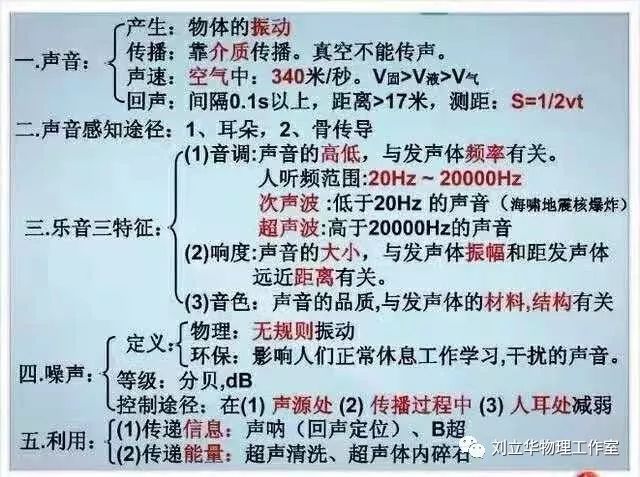 产生：物体的振动
一.声音：传播：靠介质传播。真空不能传声。
声速：空气中：340米/秒。V固>V液>V气
回声：间隔0.1s以上，距离>17米，测距：S=1/2vt
二.声音感知途径：1、耳朵，2、骨传导
(1)音调:声音的高低，与发声体频率有关。
人听频范围:20Hz ~ 20000Hz
次声波 :低于20Hz 的声音（海啸地震核爆炸）
三.乐音三特征：超声波:高于20000Hz的声音
(2)响度:声音的大小，与发声体振幅和距发声体
远近距离有关。
(3)音色：声音的品质,与发声体的材料,结构有关
定义:物理：无规则振动
环保：影响人们正常休息工作学习,干扰的声音。
四.噪声：等级：分贝,dB
控制途径：在(1) 声源处 (2) 传播过程中 (3) 人耳处减弱
五.利用：(1)传递信息：声呐（回声定位）、B超
(2)传递能量：超声清洗、超声体内碎石
刘立华物理工作室